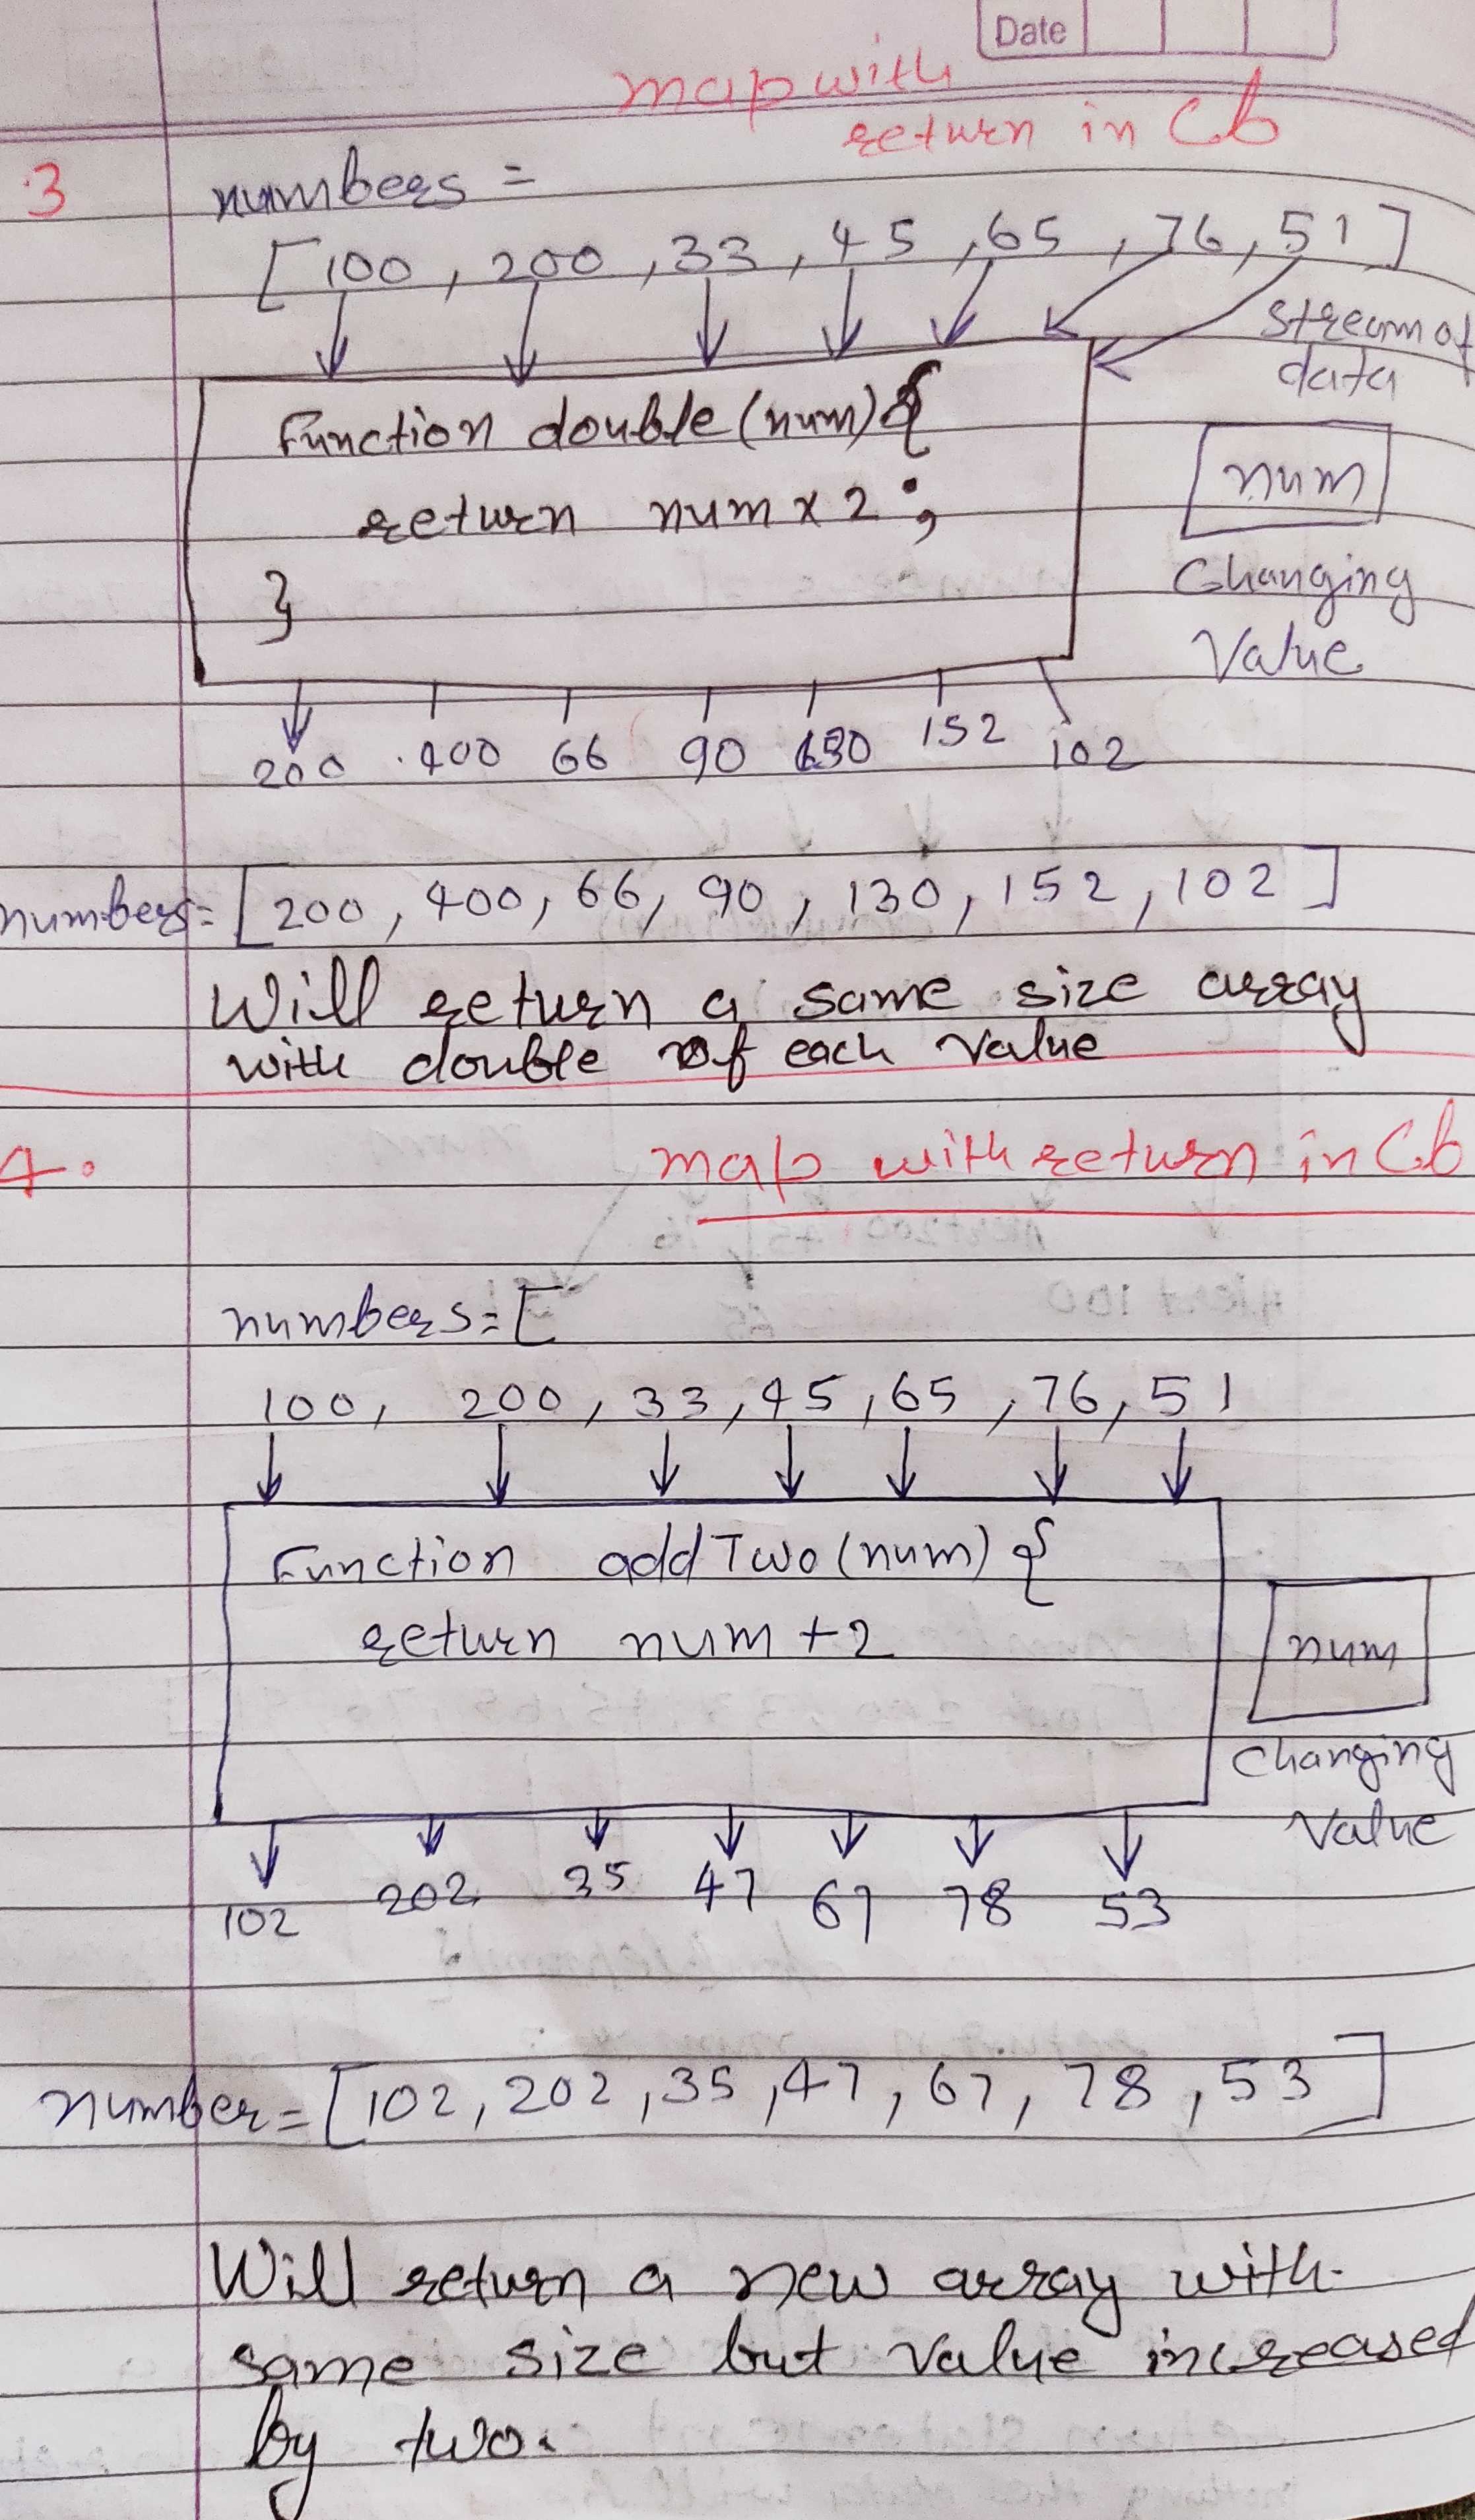 Date
map with
return in Cb
3
numbers =
[100, 200, 33, 45, 65, 76, 51]
stream of
data
Function double (num) {
return num x 2 ;
}
num
Changing
Value
200 400 66 90 130 152 102
numbers = [200, 400, 66, 90, 130, 152, 102]
Will return a same size array
with double of each value
4.
map with return in Cb
numbers = [
100, 200, 33, 45, 65, 76, 51
Function addTwo (num) {
return num + 2
num
Changing
Value
102 202 35 47 67 78 53
number = [102, 202, 35, 47, 67, 78, 53]
Will return a new array with
same size but value increased
by two.